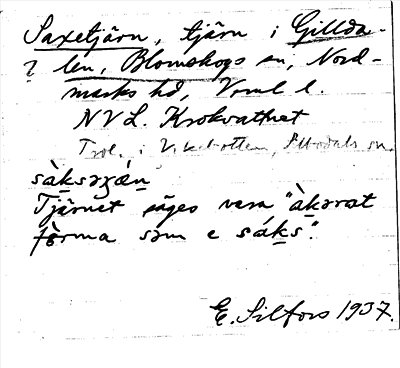 Saxetjärn, tjärn i Gillda-
? len, Blomskogs sn, Nord-
marks hd, Vrml l.
NVL. Krokvattnet
Trol. i Vikbotten, sn.
sàksəɟæ̀n
Tjärnet säges vara "àkərat
fòrma səm e sáks".
E. Silfors 1937.